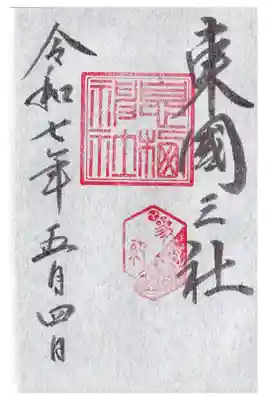 東國三社
息栖神社
令和七年五月四日